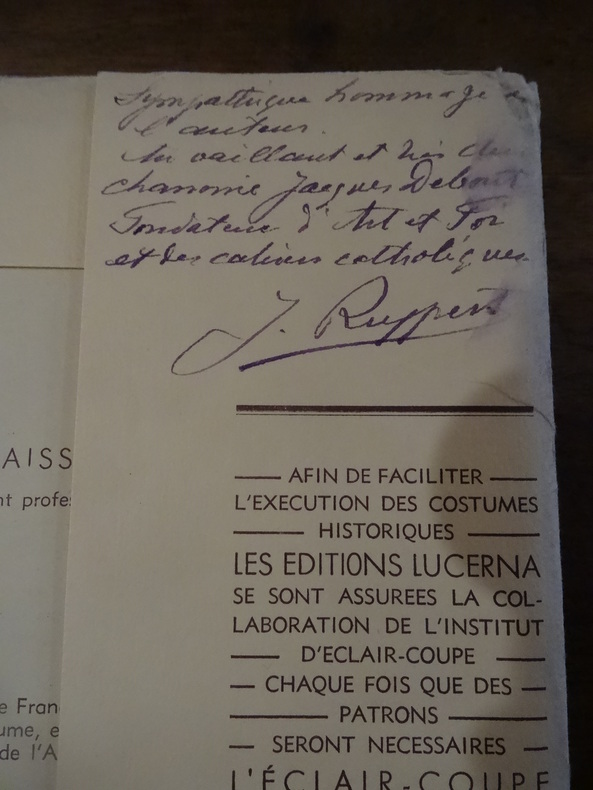 Sympathique hommage de
l'auteur.
Au vaillant et très cher
chanoine Jacques Debout
Fondateur d'Art et Foi
et des cahiers catholiques
J. Ruppert
AISS
nt profes
AFIN DE FACILITER
L'EXECUTION DES COSTUMES
HISTORIQUES
LES EDITIONS LUCERNA
SE SONT ASSUREES LA COL-
LABORATION DE L'INSTITUT
D'ECLAIR-COUPE
CHAQUE FOIS QUE DES
PATRONS
SERONT NECESSAIRES
L'ÉCLAIR-COUPE
e Fran
ume, e
de l'A